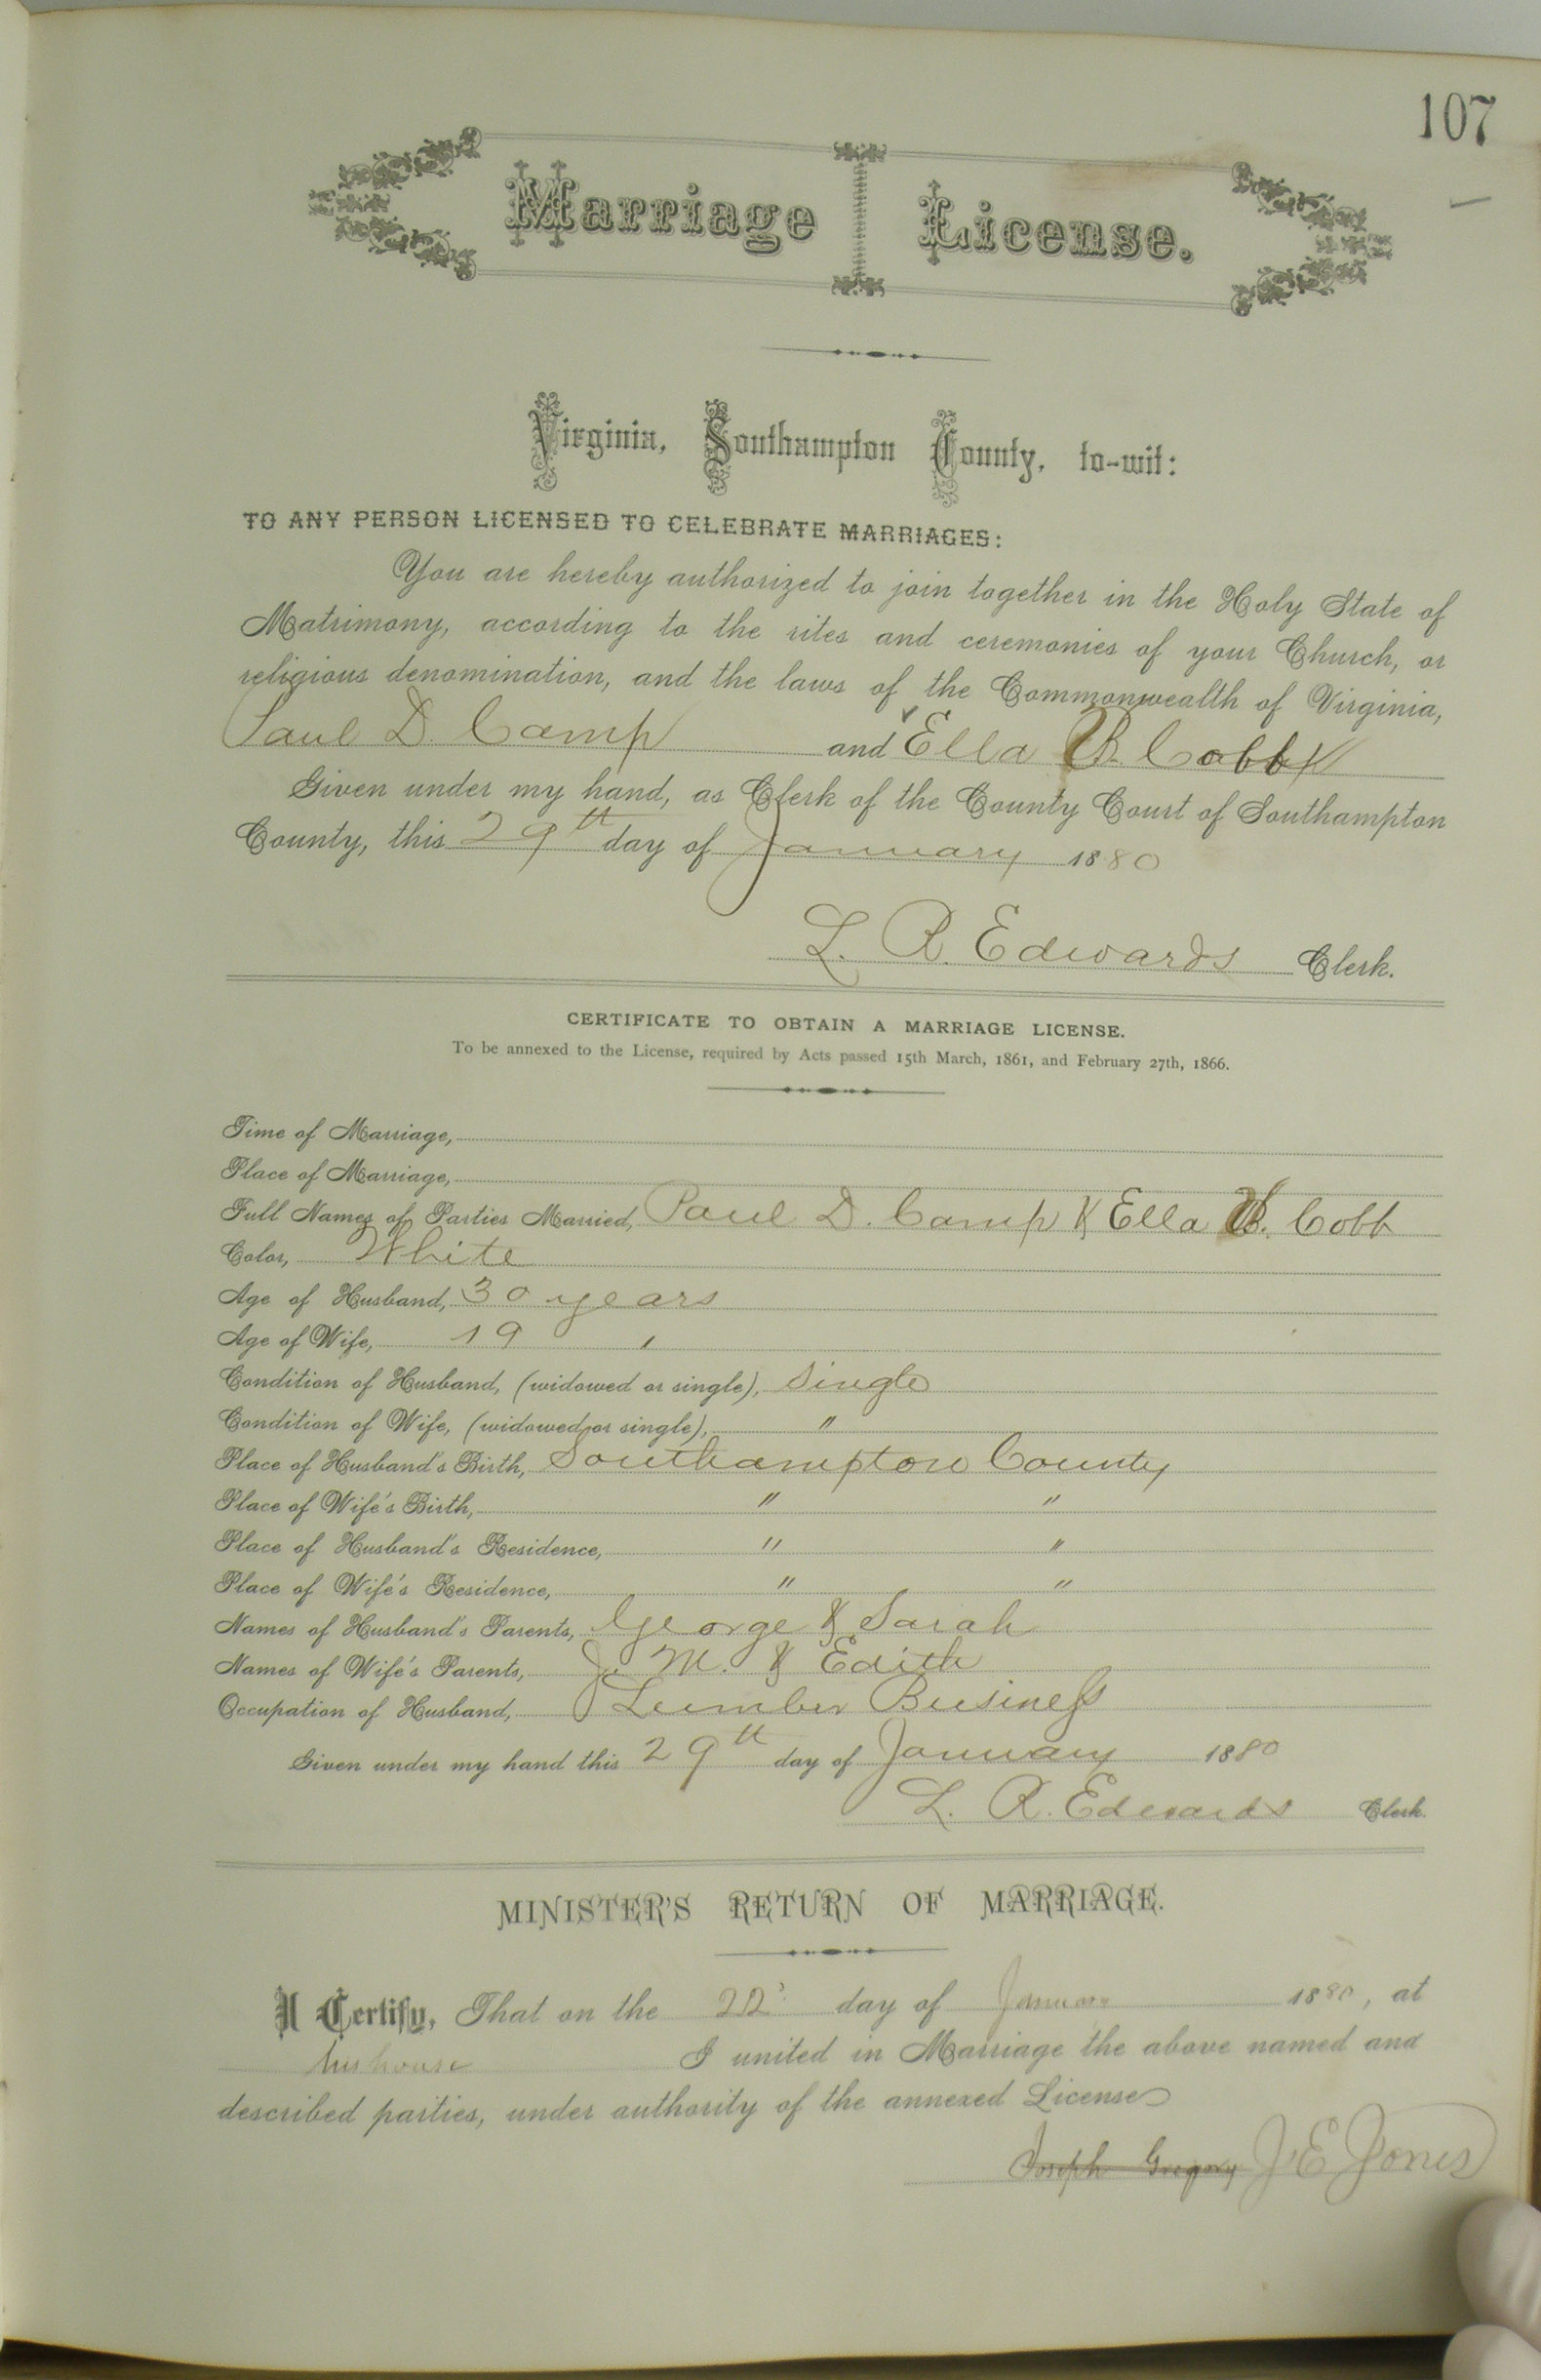 107
Marriage License.
Virginia, Southampton County, to-wit:
TO ANY PERSON LICENSED TO CELEBRATE MARRIAGES:
You are hereby authorized to join together in the Holy State of
Matrimony, according to the rites and ceremonies of your Church, or
religious denomination, and the laws of the Commonwealth of Virginia,
Paul D. Camp and Ella B. Cobb
Given under my hand, as Clerk of the County Court of Southampton
County, this 29th day of January 1880
L. R. Edwards Clerk.
CERTIFICATE TO OBTAIN A MARRIAGE LICENSE.
To be annexed to the License, required by Acts passed 15th March, 1861, and February 27th, 1866.
Time of Marriage,
Place of Marriage,
Full Names of Parties Married, Paul D. Camp & Ella B. Cobb
Color, White
Age of Husband, 30 years
Age of Wife, 19 "
Condition of Husband, (widowed or single), Single
Condition of Wife, (widowed or single), "
Place of Husband's Birth, Southampton County
Place of Wife's Birth, " "
Place of Husband's Residence, " "
Place of Wife's Residence, " "
Names of Husband's Parents, George & Sarah
Names of Wife's Parents, J. M. & Edith
Occupation of Husband, Lumber Business
Given under my hand this 29th day of January 1880
L. R. Edwards Clerk.
MINISTER'S RETURN OF MARRIAGE.
I Certify, That on the day of January 1880, at
his house I united in Marriage the above named and
described parties, under authority of the annexed License
Joseph Gregory J E Jones